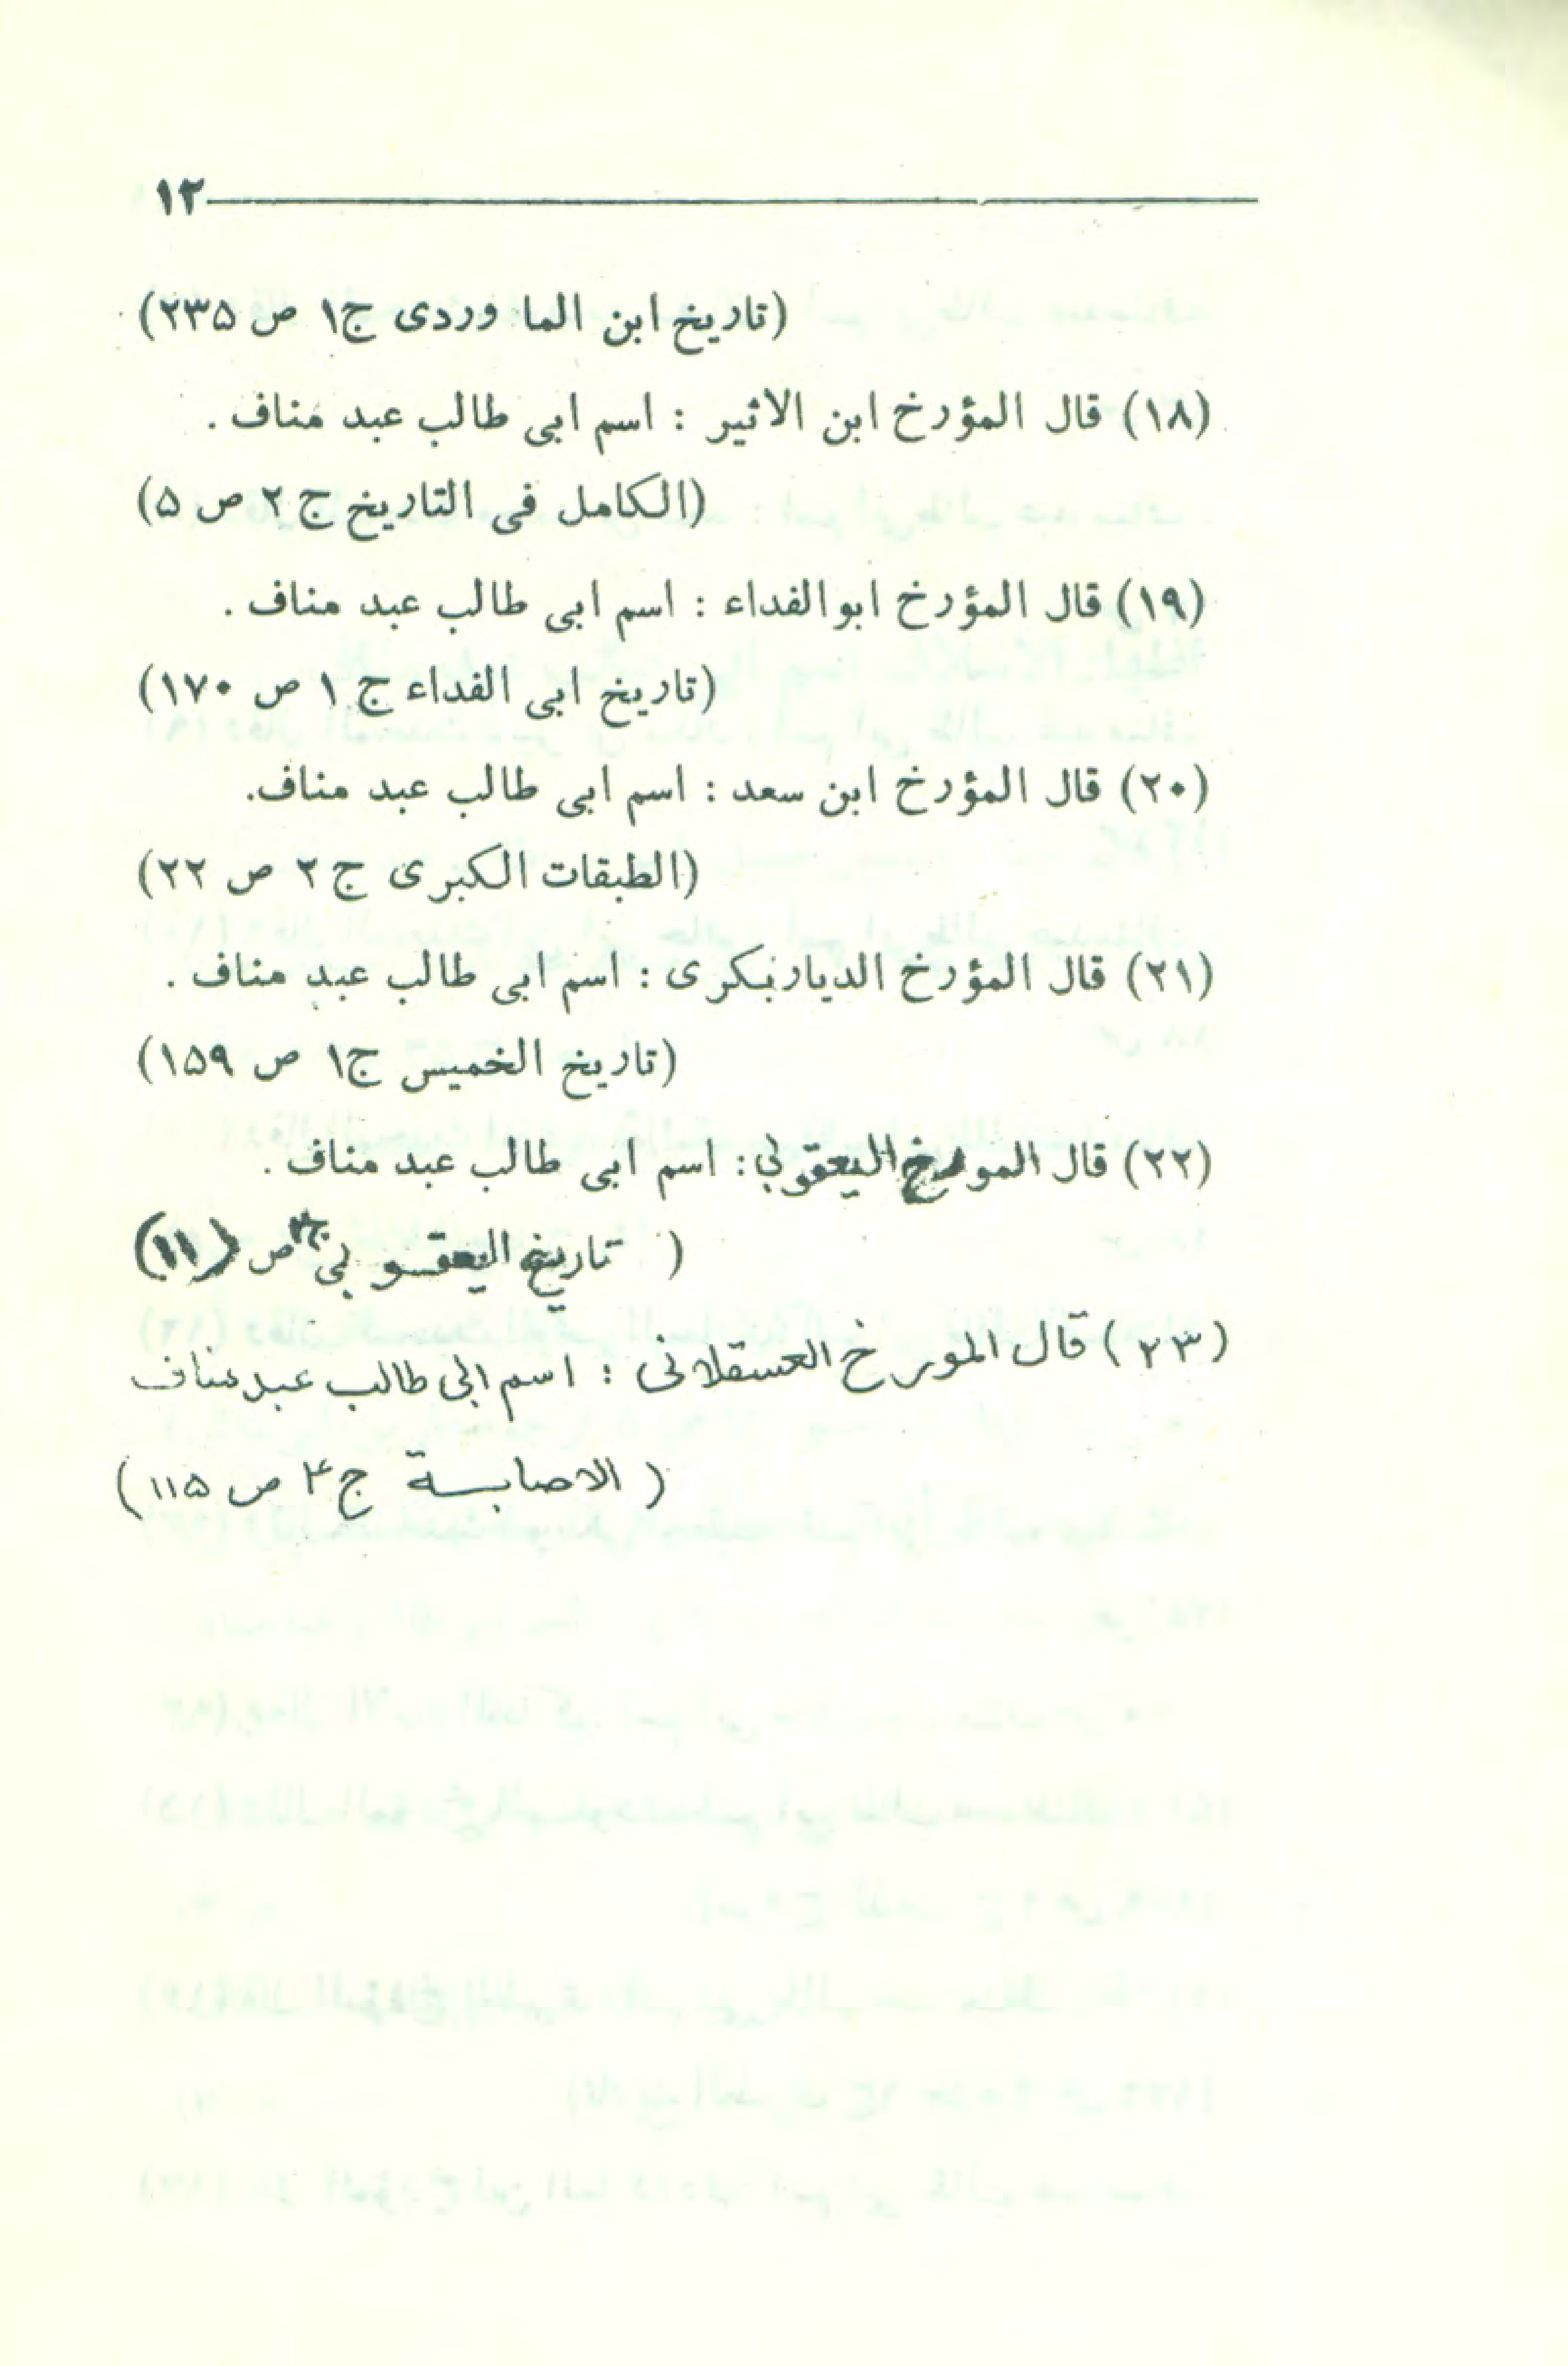 ١٢
(تاريخ ابن الما وردى ج١ ص ٢٣۵)
(١٨) قال المؤرخ ابن الاثير : اسم ابى طالب عبد مناف .
(الكامل فى التاريخ ج ٢ ص ۵)
(١٩) قال المؤرخ ابوالفداء : اسم ابى طالب عبد مناف .
(تاريخ ابى الفداء ج ١ ص ١٧٠)
(٢٠) قال المؤرخ ابن سعد : اسم ابى طالب عبد مناف.
(الطبقات الكبرى ج ٢ ص ٢٢)
(٢١) قال المؤرخ الديار بكرى : اسم ابى طالب عبد مناف .
(تاريخ الخميس ج١ ص ١۵٩)
(٢٢) قال المورخ اليعقوبي : اسم ابى طالب عبد مناف .
( تاريخ اليعقو بي ص (١١)
(٢٣) قال المورخ العسقلانى : اسم ابى طالب عبد مناف
( الاصابة ج ۴ ص ١١۵)